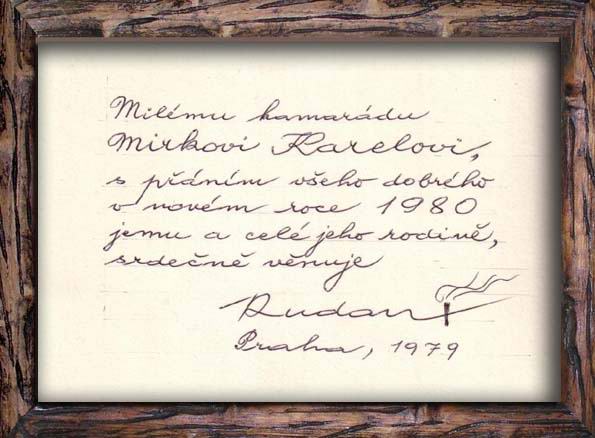 Milému kamarádu
Mirkovi Karelovi,
s přáním všeho dobrého
v novém roce 1980
jemu a celé jeho rodině,
srdečně věnuje
Rudan
Praha, 1979